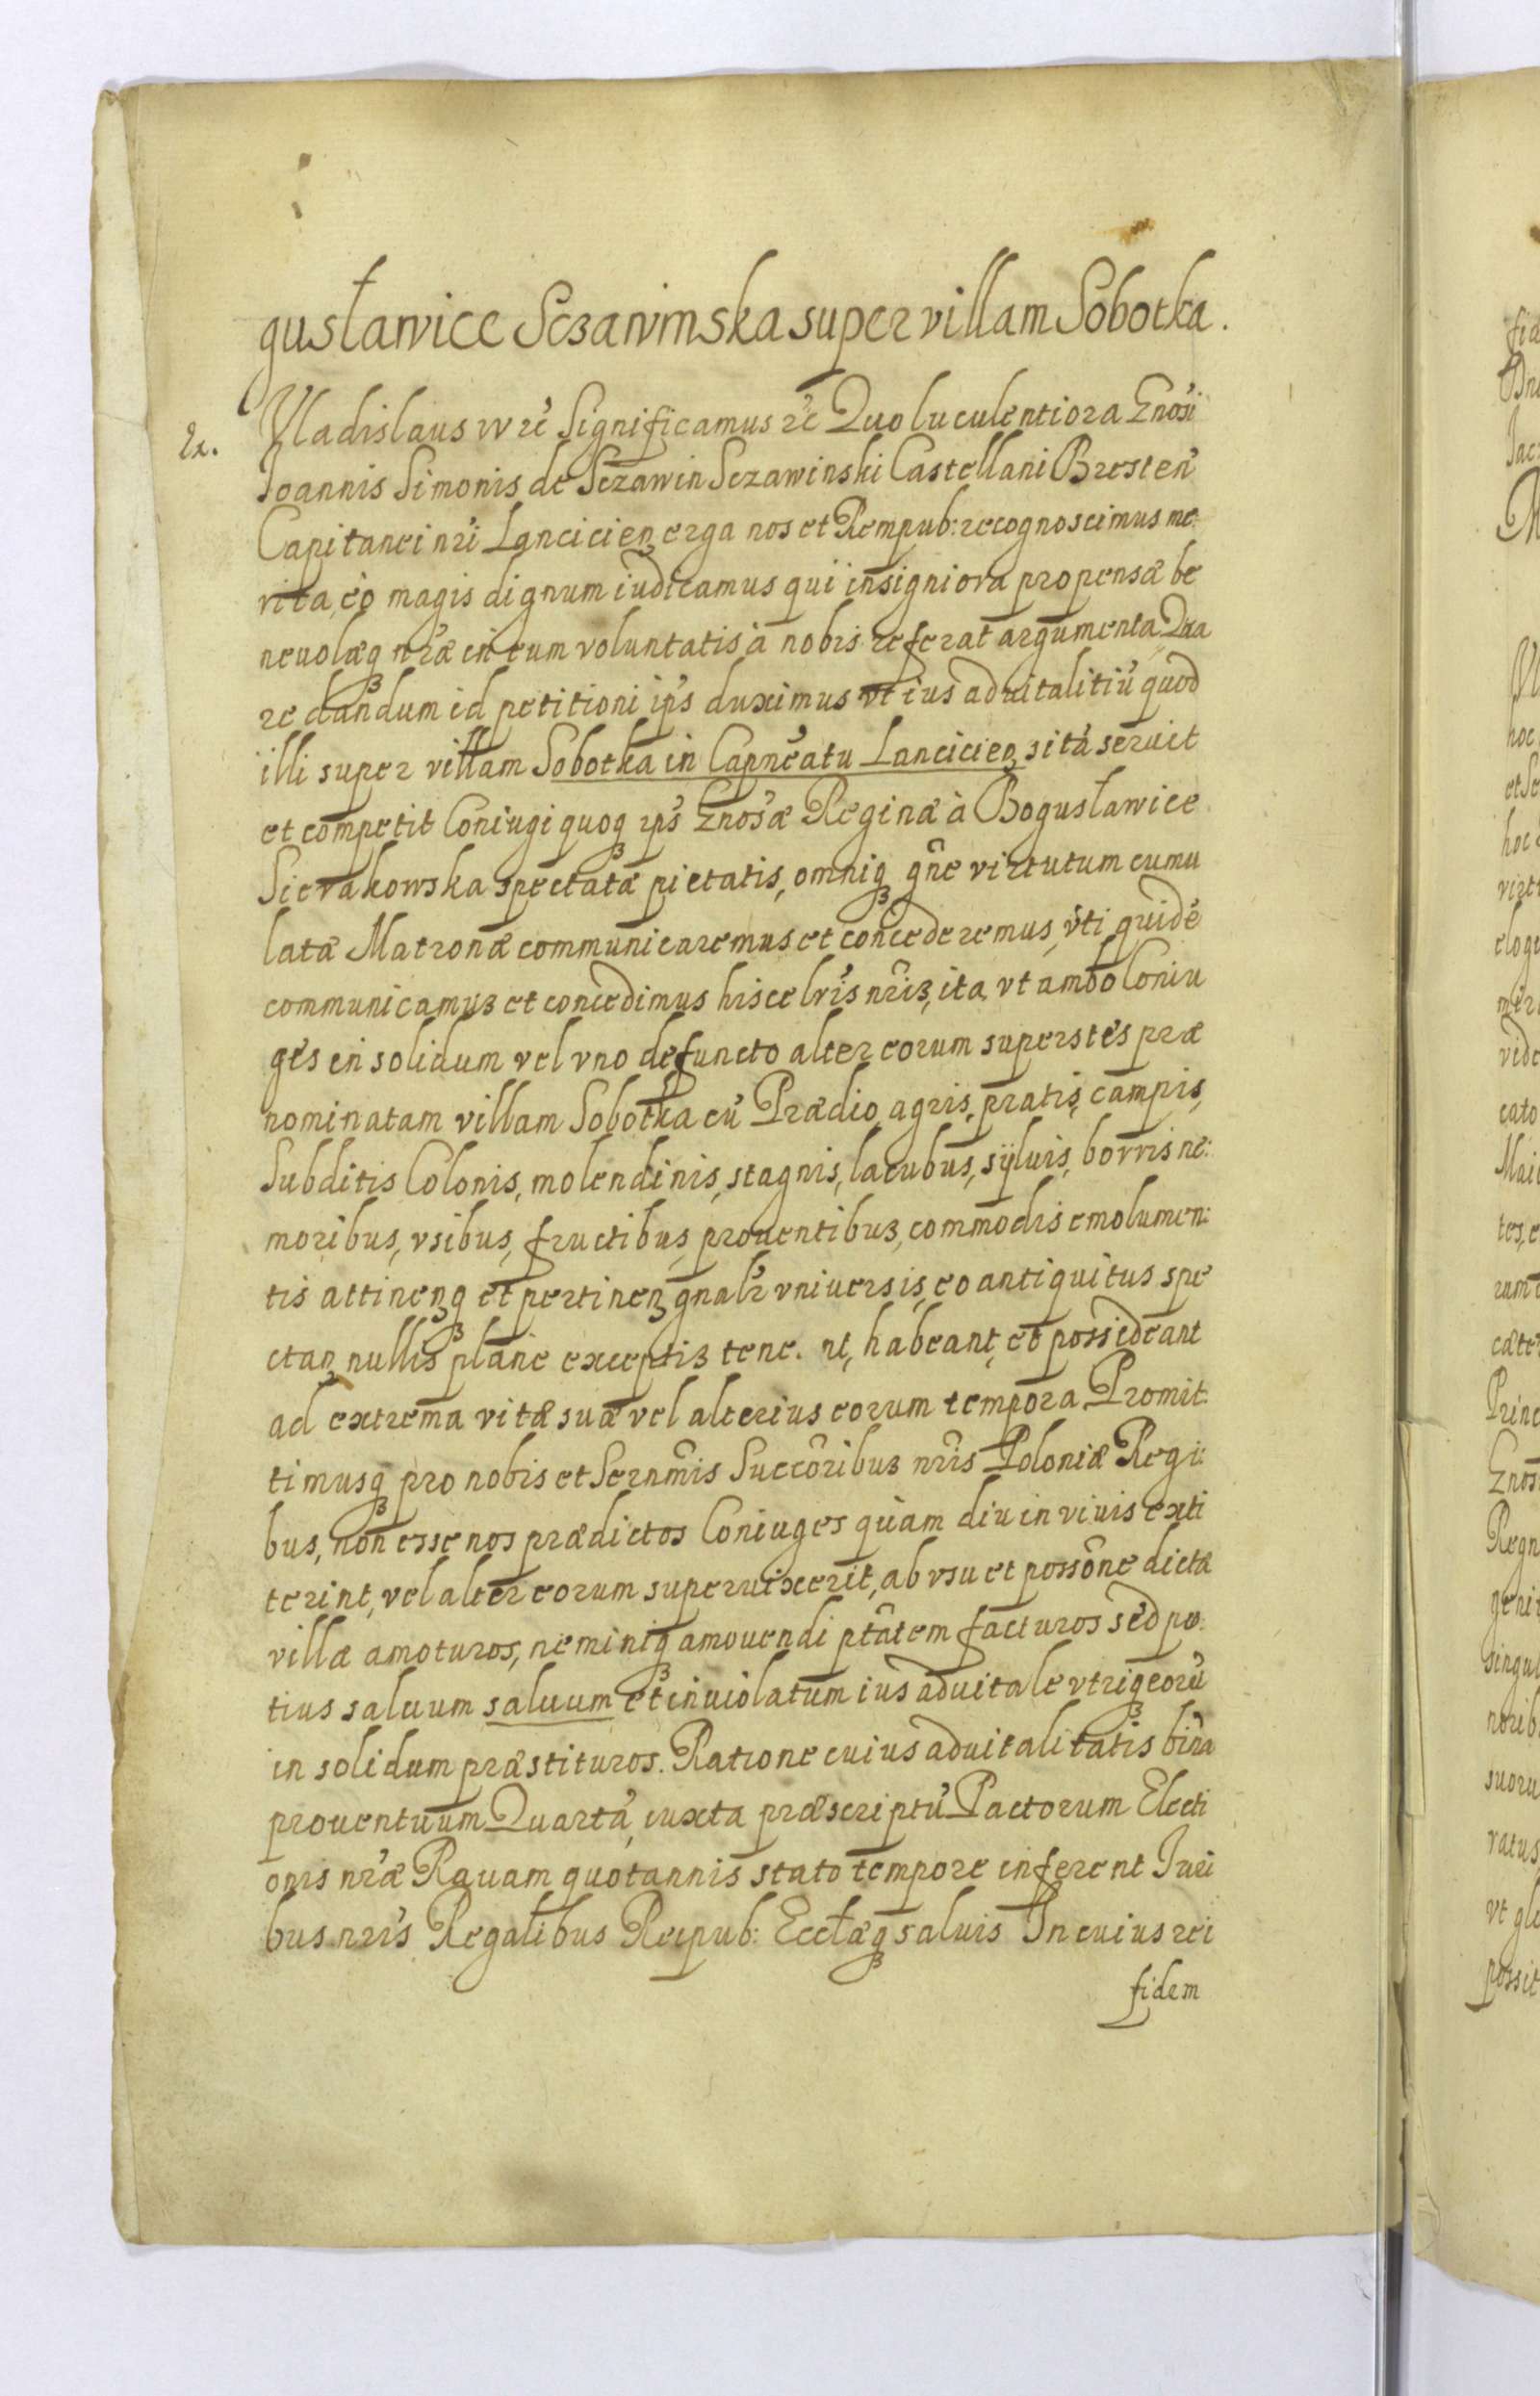 gusławice Sczawinska super villam Sobotka.
Ex.
Vladislaus IV etc Significamus etc Quo luculentiora Gnosi
Ioannis Simonis de Sczawin Sczawinski Castellani Bresten̄
Capitanei nr̄i Lancicienʒ erga nos et Rempub: recognoscimus me-
rita, eò magis dignum iudicamus qui insigniora propensæ be
neuolæqʒ nr̄æ in eum voluntatis à nobis referat argumenta, Qua
re dandum id petitioni ip̄s duximus vt ius aduitalitiū quod
illi super villam Sobotka in Capn̄eatu Lancicienʒ sitā seruit
et competit Coniugi quoqʒ ip̄s Gnosæ Reginæ à Bogusławice
Sierakowska spectatæ pietatis, omniqʒ gn̄e virtutum cumu
latæ Matronæ communicaremus et concederemus, vti quidē
communicamus et concedimus hisce lr̄is nr̄is, ita, vt ambo Coniu
ges in solidum vel vno defuncto alter eorum superstes præ
nominatam villam Sobotka cū Prædio, agris, pratis, campis,
Subditis Colonis, molendinis, stagnis, lacubus, syluis, borris ne:
moribus, vsibus, fructibus, prouentibus, commodis emolumen:
tis attinenʒqʒ et pertinenʒ gnalr̄ vniuersis, eo antiquitus spe
ctanʒ nullis planè exceptis tene. nt, habeant, et possideant
ad extrema vitæ suæ vel alterius eorum tempora, Promit:
timusqʒ pro nobis et Sernm̄is Succōribus nr̄is Poloniæ Regi:
bus, non esse nos prædictos Coniuges quàm diu in viuis exti
terint, vel alter eorum superuixerit, ab vsu et possōne dictæ
villæ amoturos, neminiqʒ amouendi ptātem facturos sed po:
tius saluum saluum et inuiolatum ius aduitale vtriqʒ eorū
in solidum præstituros. Ratione cuius aduitalitatis binā
prouentuum Quartā, iuxta præscriptū Pactorum Electi
onis nr̄æ Rauam quotannis stato tempore inferent Iuri
bus nr̄is Regalibus Reipub: Ecclæqʒ saluis In cuius rei
fidem